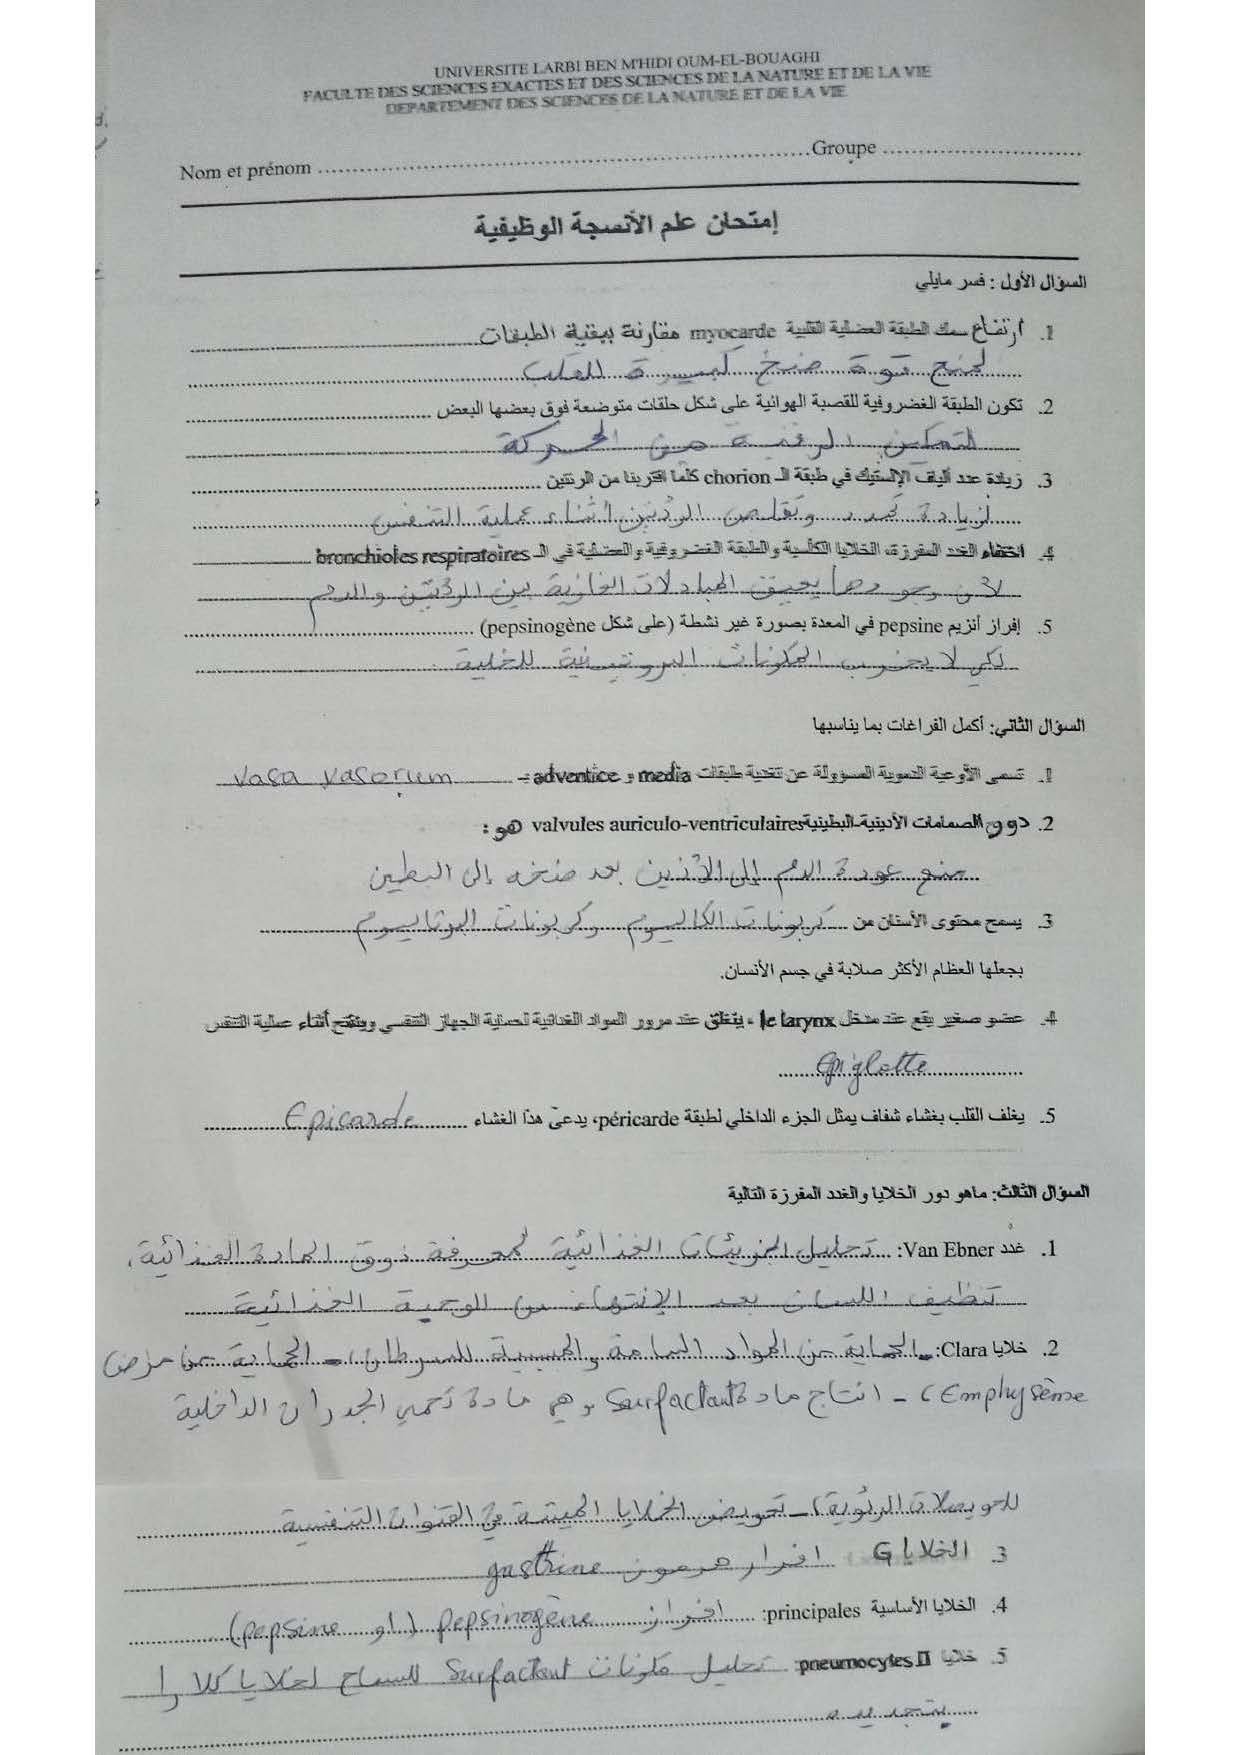 UNIVERSITE LARBI BEN M'HIDI OUM-EL-BOUAGHI
FACULTE DES SCIENCES EXACTES ET DES SCIENCES DE LA NATURE ET DE LA VIE
DEPARTEMENT DES SCIENCES DE LA NATURE ET DE LA VIE
Nom et prénom ........................ Groupe ........................
إمتحان علم الأنسجة الوظيفية
السؤال الأول : فسر مايلي
1. ارتفاع سمك الطبقة العضلية القلبية myocarde مقارنة ببقية الطبقات
لمنح قوة ضخ كبيرة للقلب
2. تكون الطبقة الغضروفية للقصبة الهوائية على شكل حلقات متوضعة فوق بعضها البعض
لتمكين الرقبة من الحركة
3. زيادة عدد ألياف الإلستيك في طبقة الـ chorion كلما اقتربنا من الرئتين
لزيادة تمدد وتقلص الرئتين أثناء عملية التنفس
4. اختفاء الغدد المفرزة، الخلايا الكأسية والطبقة الغضروفية والعضلية في الـ bronchioles respiratoires
لأن وجودها يعيق المبادلات الغازية بين الرئتين والدم
5. إفراز أنزيم pepsine في المعدة بصورة غير نشطة (على شكل pepsinogène)
لكي لا يخرب المكونات البروتينية للخلية
السؤال الثاني: أكمل الفراغات بما يناسبها
1. تسمى الأوعية الدموية المسؤولة عن تغذية طبقات media و adventice بـ vasa vasorum
2. دور الصمامات الأذينية-البطينية valvules auriculo-ventriculaires هو:
منع عودة الدم إلى الأذنين بعد ضخه إلى البطين
3. يسمح محتوى الأسنان من كربونات الكالسيوم وكربونات البوتاسيوم
بجعلها العظام الأكثر صلابة في جسم الأنسان.
4. عضو صغير يقع عند مدخل le larynx ، ينغلق عند مرور المواد الغذائية لحماية الجهاز التنفسي وينفتح أثناء عملية التنفس
Epiglotte
5. يغلف القلب بغشاء شفاف يمثل الجزء الداخلي لطبقة péricarde، يدعى هذا الغشاء Epicarde
السؤال الثالث: ماهو دور الخلايا والغدد المفرزة التالية
1. غدد Van Ebner: تحليل الجزيئات الغذائية لمعرفة ذوق المادة الغذائية،
تنظيف اللسان بعد الإنتهاء من الوجبة الغذائية
2. خلايا Clara: - الحماية من المواد السامة والمسببة للسرطان، - الحماية من مرض
Emphysème) - انتاج مادة Surfactant وهي مادة تحمي الجدران الداخلية
للحويصلات الرئوية) - تعويض الخلايا الميتة في القنوات التنفسية
3. الخلايا G افراز هرمون gastrine
4. الخلايا الأساسية principales: افراز pepsinogène (او pepsine)
5. خلايا pneumocytes II تحليل مكونات Surfactant للسماح لخلايا كلارا
بتجديده